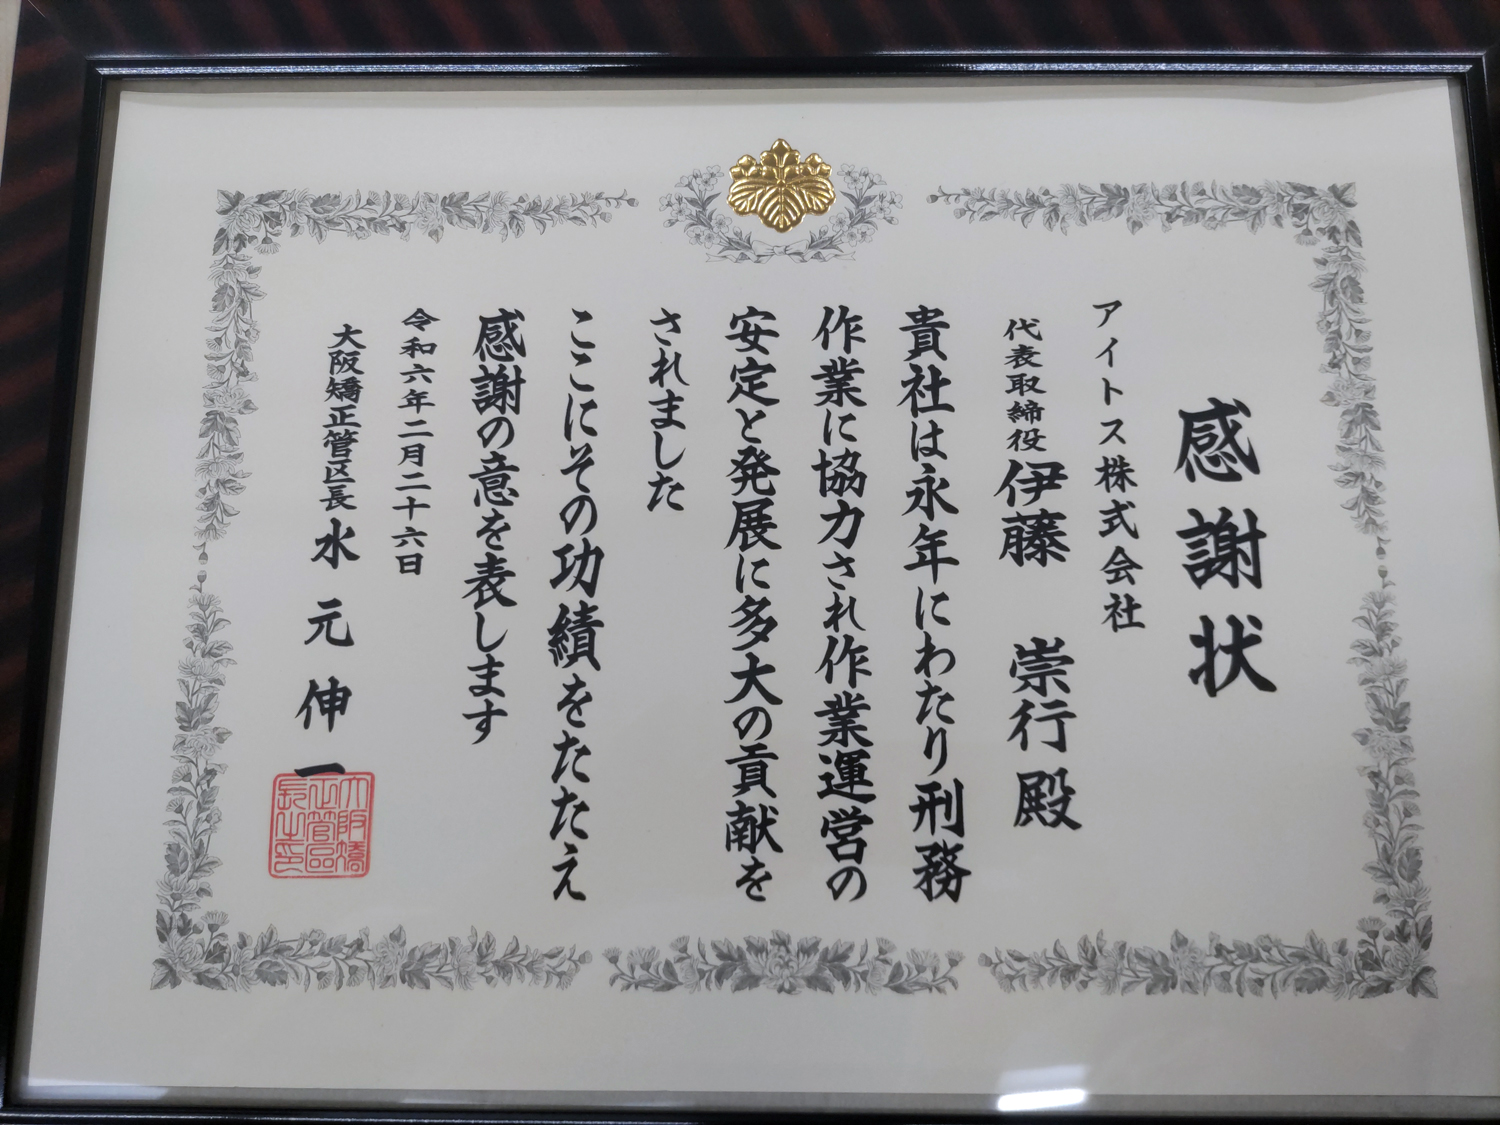 感謝状
アイトス株式会社
代表取締役 伊藤 崇行 殿
貴社は永年にわたり刑務
作業に協力され作業運営の
安定と発展に多大の貢献を
されました
ここにその功績をたたえ
感謝の意を表します
令和六年二月二十六日
大阪矯正管区長 水元伸一
大阪矯
正管區
長之印